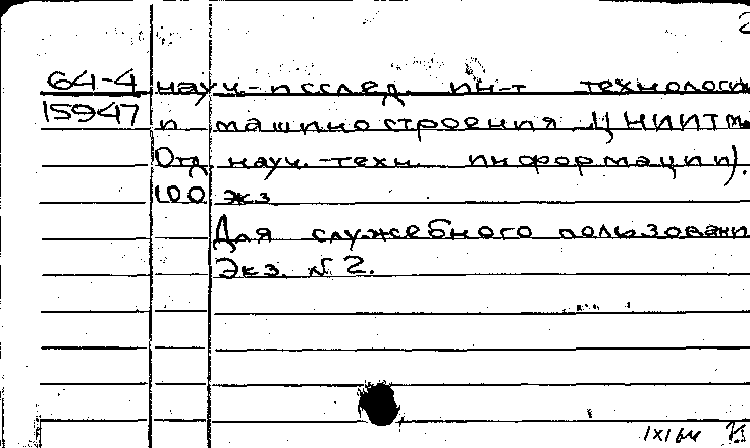 2
64-4 науч.-исслед. ин-т технологи
15947 и машиностроения ЦНИИТМ
Отд. науч.-техн. информации).
100 экз
Для служебного пользовани
Экз. № 2.